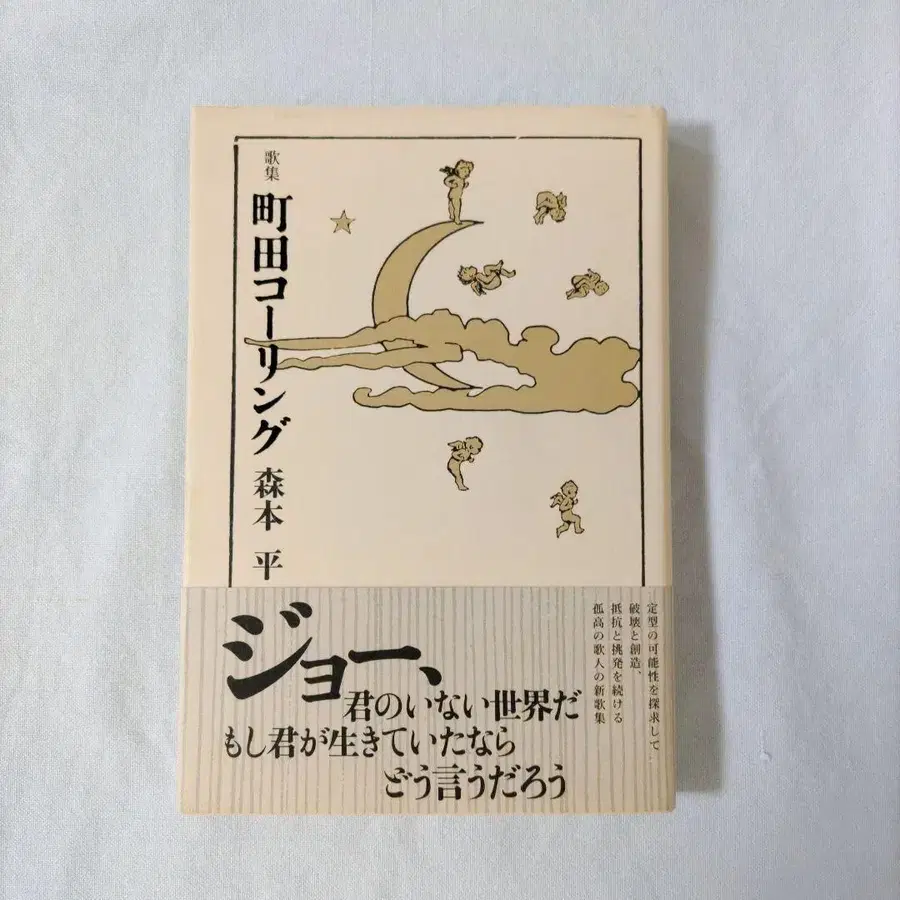 歌集
町田コーリング
森本 平
ジョー、
君のいない世界だ
もし君が生きていたなら
どう言うだろう
定型の可能性を探求して
破壊と創造、
抵抗と挑発を続ける
孤高の歌人の新歌集